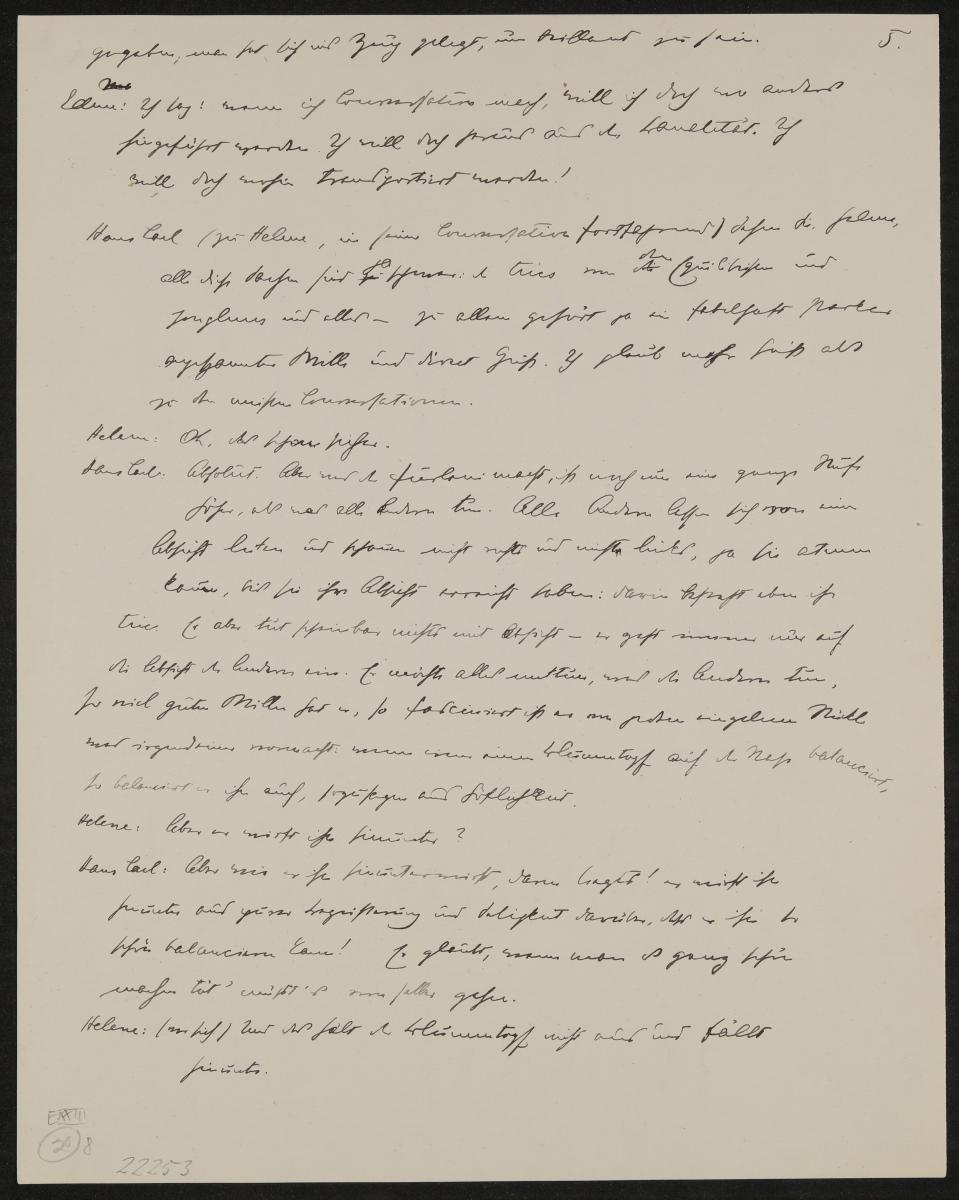 gegeben, man hat sich ins Zeug gelegt, um brillant zu sein. 5.
Edine: Ich sag: wenn ich Conversation mach, will ich doch wo anders
hingeführt werden. Ich will doch heraus aus der Banalität. Ich
will doch wohin transportiert werden!
Hans Carl (zu Helene, in seiner Conversation fortfahrend) Sehen Sie, Helene,
alle diese Sachen sind schwer: die trics von den Equilibristen und
Jongleurs und alles — zu allem gehört ja ein fabelhaft starker
angespannter Wille und direct Geist. Ich glaub mehr Geist als
zu den meisten Conversationen.
Helene: Oh, das schon sicher.
Hans Carl: Absolut. Aber was der Furlani macht, ist noch um eine ganze Stufe
höher, als was alle Andern tun. Alle Andern lassen sich von einer
Absicht leiten und schauen nicht rechts und nicht links, ja sie atmen
kaum, bis sie ihre Absicht erreicht haben: darin besteht eben ihr
tric. Er aber tut scheinbar nichts mit Absicht — er geht immer nur auf
die Absicht der Andern ein. Er möchte alles mittun, was die Andern tun,
so viel guten Willen hat er, so fasciniert ist er von jedem einzelnen Stückl
was irgendeiner vormacht: wenn einer einen Blumentopf auf der Nase balanciert,
so balanciert er ihn auch, sozusagen aus Höflichkeit.
Helene: Aber er wirft ihn hinunter?
Hans Carl: Aber wie er ihn hinunterwirft, darin liegts! er wirft ihn
hinunter aus purer Begeisterung und Seligkeit darüber, dass er ihn so
schön balancieren kann! Er glaubt, wenn man es ganz schön
machen tät' müsst's von selber gehen.
Helene: (vor sich) Und das hält der Blumentopf nicht aus und fällt
hinunter.
E XXIII
20 8
22253